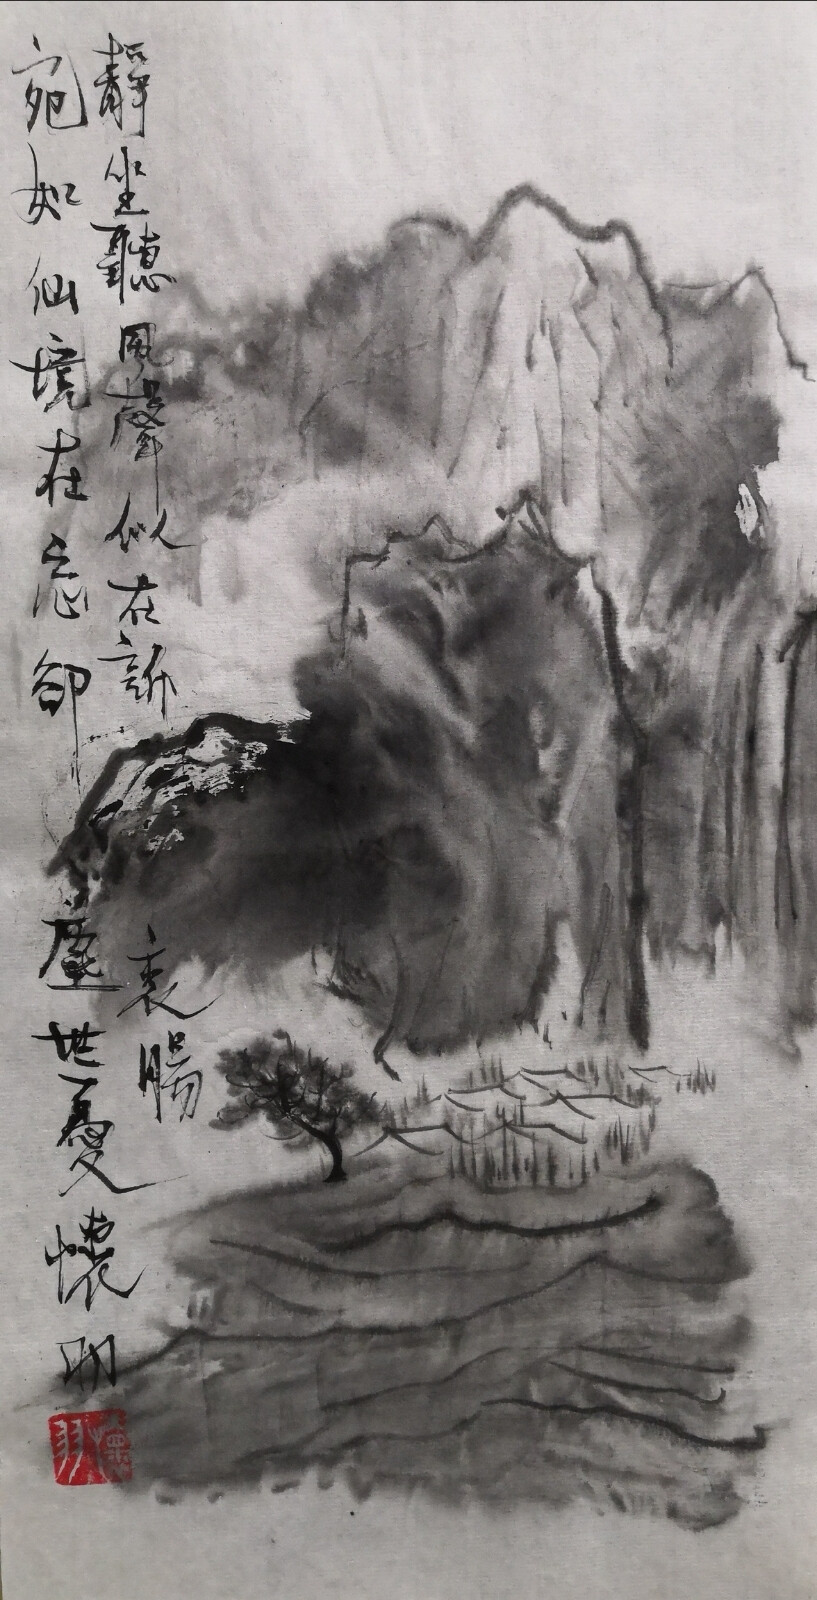 靜坐聽風聲似在訴衷腸
宛如仙境在忘卻塵世憂 懷羽
懷羽